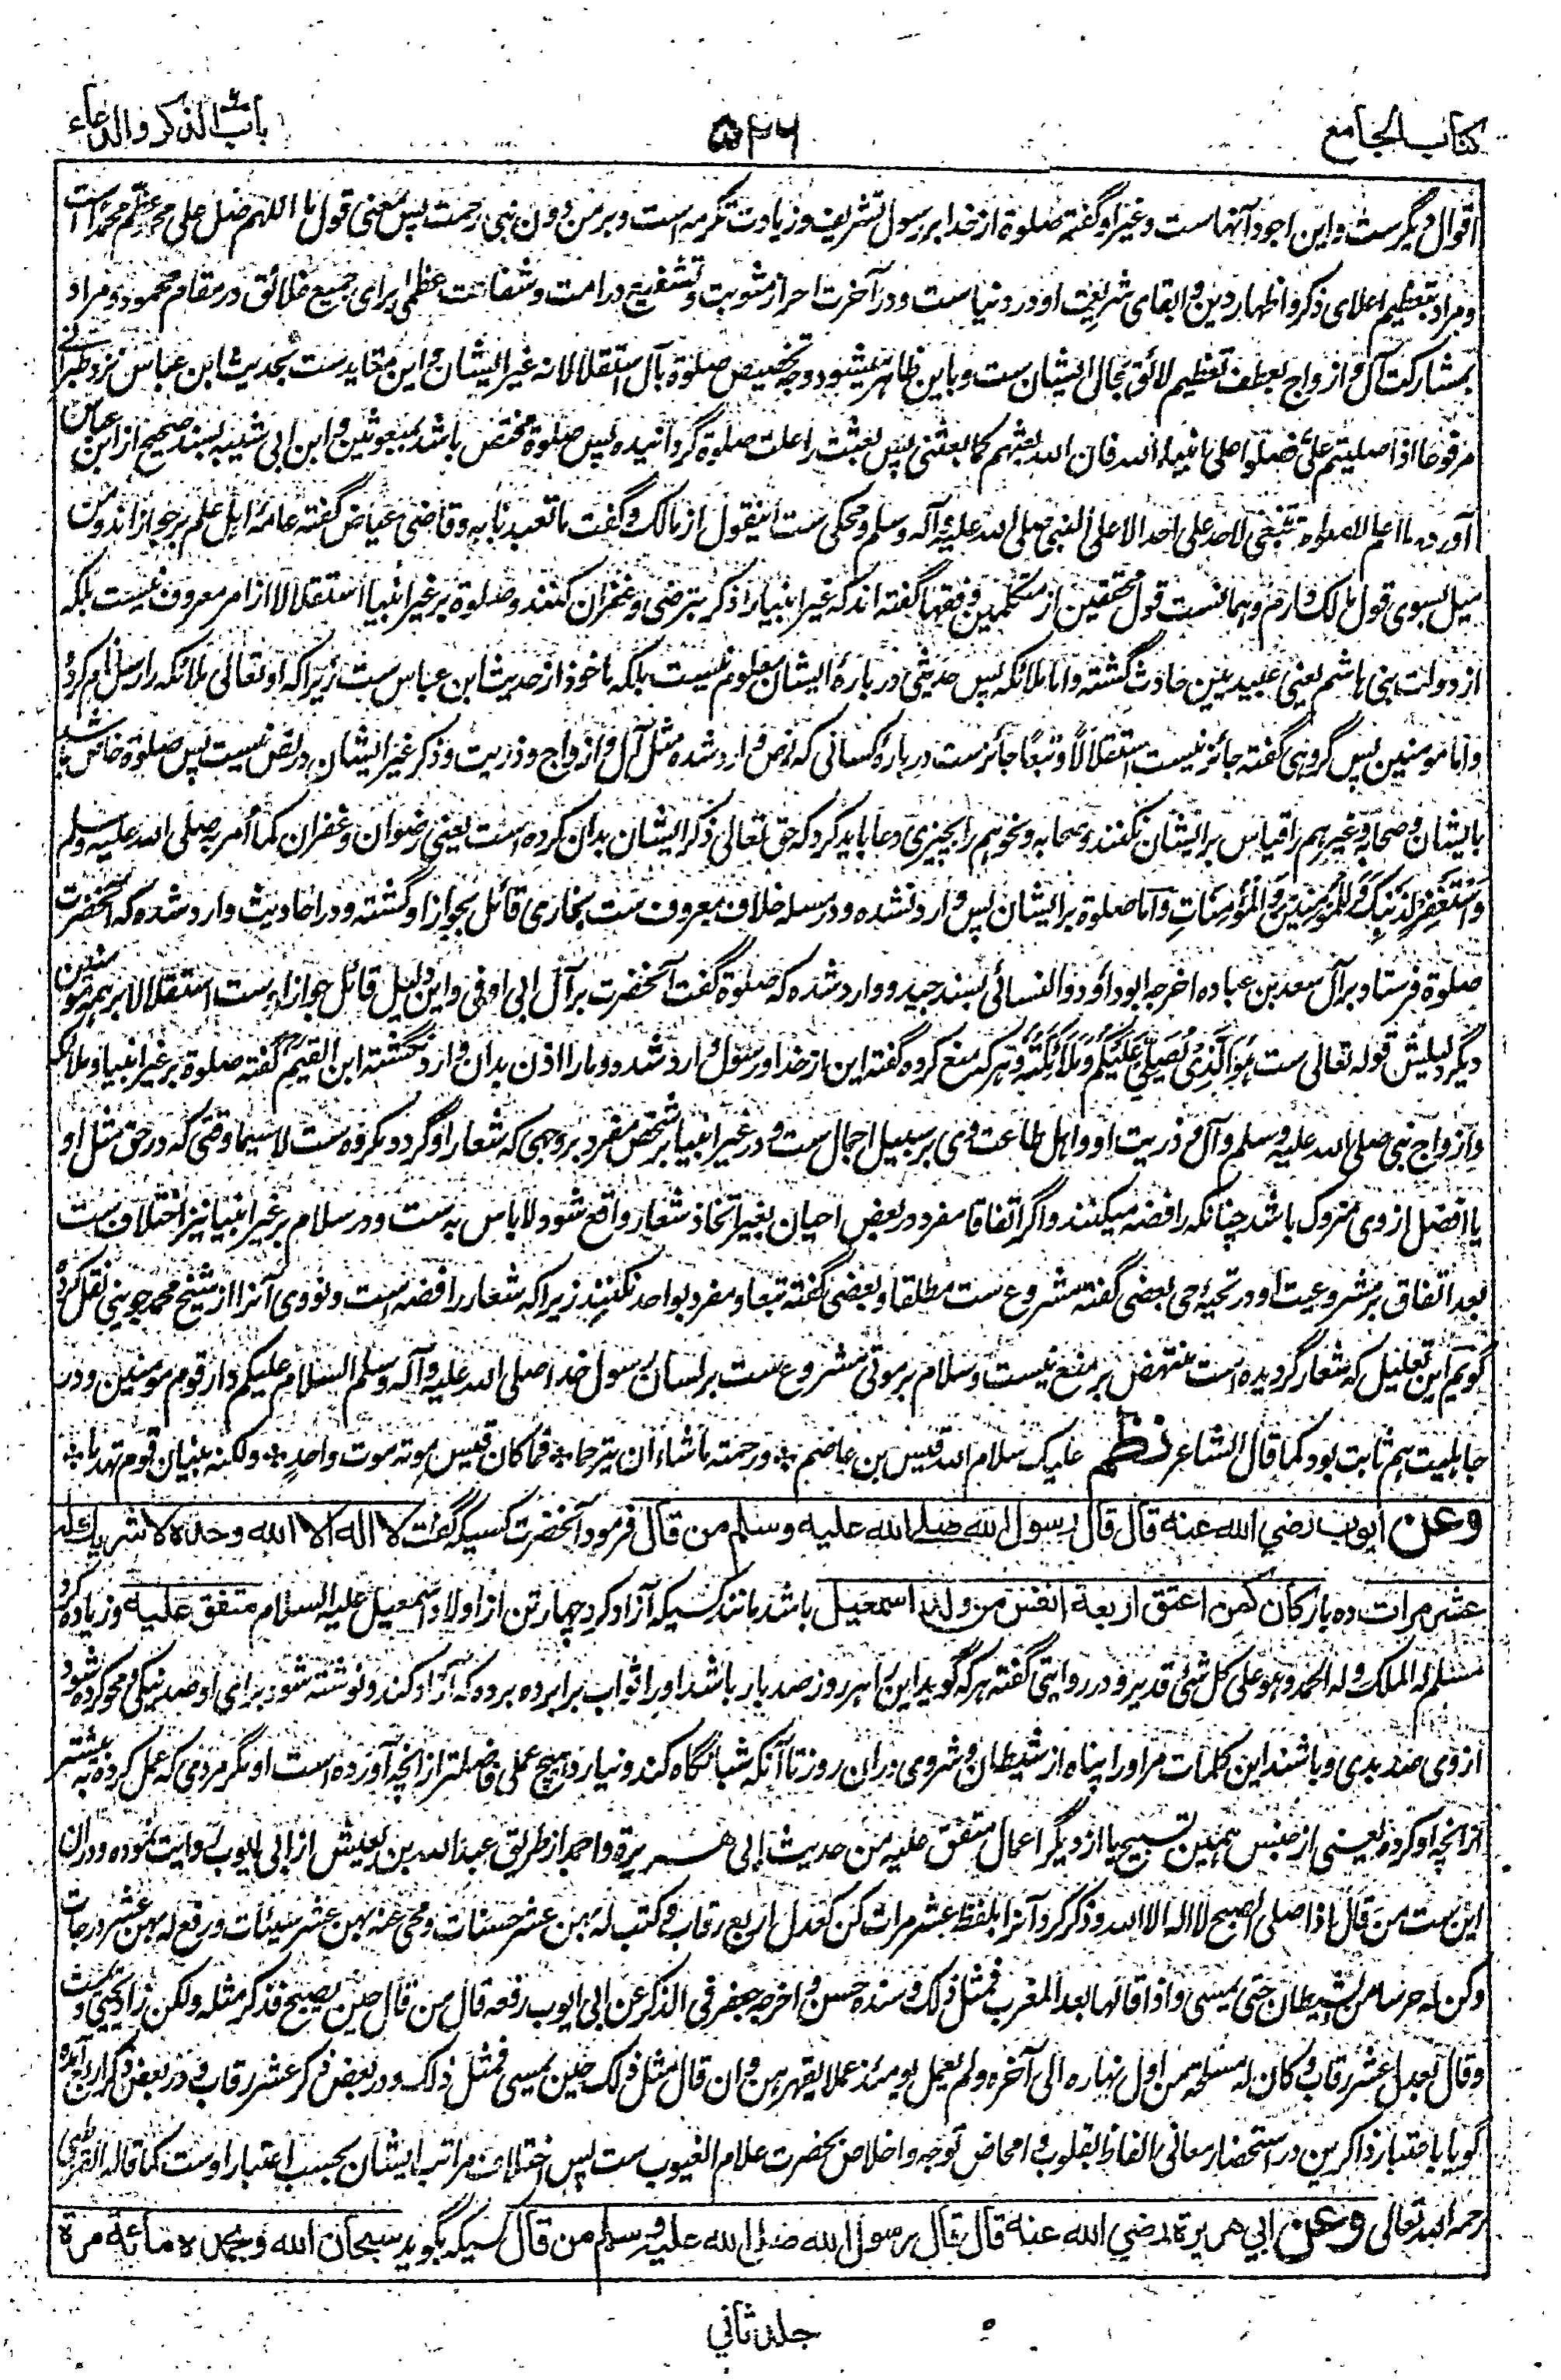 کتاب الجامع
۵۴۶
باب الذکر والدعاء
اقوال دیگرست و این اجود آنهاست و غیر او گفته صلوة از خدا بر رسول تشریف و زیادت تکرمه است و بر من دون نبی رحمت پس معنی قول ما اللهم صل علی محمد عظم محمدا است
و مراد بتعظیم اعلای ذکر و اظهار دین و ابقای شریعت او در دنیاست و در آخرت احراز مثوبت و تشفیع در امت و شفاعت عظمی برای جمیع خلائق در مقام محمود و مراد
بمشارکت آل و ازواج بعطف تعظیم لائق بحال ایشان ست و باین ظاهر میشود وجه تخصیص صلوة بآل استقلالا نه غیر ایشان و این متایدست بحدیث ابن عباس نزد طبرانی
مرفوعا اذا صلیتم علی فصلوا علی انبیاء الله فان الله بعثهم کما بعثنی پس بعثت را علت صلوة گردانیده پس صلوة مختص باشد بمبعوثین و ابن ابی شیبه بسند صحیح از ابن عباس
آورده ما اعلم الصلوة تنبغی لاحد علی احد الا علی النبی صلی الله علیه وآله وسلم و محکی ست اینقول از مالک و گفت ما تعبدنا به و قاضی عیاض گفته عامهٔ اهل علم بر جواز اند و من
میل بسوی قول مالک دارم و همانست قول محققین از متکلمین و فقها گفته اند که غیر انبیا را ذکر بترضی و غفران کنند و صلوة بر غیر انبیا استقلالا از امر معروف نیست بلکه
از دولت بنی هاشم یعنی عبیدیین حادث گشته و اما ملائکه پس حدیثی در بارهٔ ایشان معلوم نیست بلکه ماخوذ از حدیث ابن عباس ست زیرا که او تعالی ملائکه را رسل نام کرده
و اما مومنین پس گروهی گفته جائز نیست استقلالا و تبعا جائزست در بارهٔ کسانی که نص وارد شده مثل آل و ازواج و ذریت و ذکر غیر ایشان در نص نیست پس صلوة خاص باشد
بایشان و صحابه و غیرهم را قیاس بر ایشان نکنند و صحابه و نحو هم را بچیزی دعا باید کرد که حق تعالی ذکر ایشان بدان کرده است یعنی رضوان و غفران کما امر به صلی الله علیه وسلم
وَاسْتَغْفِرْ لِذَنْبِكَ وَلِلْمُؤْمِنِينَ وَالْمُؤْمِنَاتِ و اما صلوة بر ایشان پس وارد نشده و در مسله خلاف معروف ست بخاری قائل بجواز او گشته و در احادیث وارد شده که آنحضرت
صلوة فرستاد بر آل سعد بن عباده اخرجه ابو داؤد والنسائی بسند جید و وارد شده که صلوة گفت آنحضرت بر آل ابی اوفی و این دلیل قائل جواز اوست استقلالا بر همه مومنین
دیگر دلیلش قوله تعالی ست هُوَ الَّذِي يُصَلِّي عَلَيْكُمْ وَمَلَائِكَتُهُ و هر که منع کرده گفته این از خدا و رسول وارد شده و ما را اذن بدان وارد نگشته ابن القیم گفته صلوة بر غیر انبیا و ملائکه
و ازواج نبی صلی الله علیه وسلم و آل و ذریت او و اهل طاعت وی بر سبیل اجمال ست و در غیر انبیا بر شخص مفرد بر وجهی که شعار او گردد مکروه ست لا سیما وقتی که در حق مثل او
یا افضل از وی متروک باشد چنانکه رافضه میکنند و اگر اتفاقا مفرد در بعض احیان بغیر اتخاذ شعار واقع شود لا باس به ست و در سلام بر غیر انبیا نیز اختلاف ست
بعد اتفاق بر مشروعیت او در تحیهٔ حی بعضی گفته مشروع ست مطلقا و بعضی گفته تبعا و مفرد بواحد نکنند زیرا که شعار رافضه است و نووی آنرا از شیخ محمد جوینی نقل کرده
گویم این تعلیل که شعار گردیده است منتهض بر منع نیست و سلام بر موتی مشروع ست بر لسان رسول خدا صلی الله علیه وآله وسلم السلام علیکم دار قوم مومنین و در
جاهلیت هم ثابت بود کما قال الشاعر نظم علیک سلام الله قیس بن عاصم ٭ ورحمته ماشاء ان یترحما ٭ فما کان قیس موته موت واحد ٭ ولکنه بنیان قوم تهدما ٭
وعن ایوب رضي الله عنه قال قال رسول الله صلی الله علیه وسلم من قال فرمود آنحضرت کسیکه گفت لا اله الا الله وحده لا شریك له
عشر مرات ده بار کان کمن اعتق اربعة انفس من ولد اسمعیل باشد مانند کسیکه آزاد کرد چهار تن از اولاد اسمعیل علیه السلام متفق علیه و زیاده کرد
مسلم له الملک وله الحمد وهو علی کل شئ قدیر و در روایتی گفته هر که گوید این را هر روز صد بار باشد او را ثواب برابر ده برده که آزاد کند و نوشته شود برای او صد نیکی و محو کرده شود
از وی صد بدی و باشند این کلمات مر او را پناه از شیطان و شر وی دران روز تا آنکه شبانگاه کند و نیارد هیچ عملی فاضلتر از انچه آورده است او مگر مردمی که عمل کرده به بیشتر
از انچه او کرده یعنی از جنس همین تسبیح یا از دیگر اعمال متفق علیه من حدیث ابی هریرة و احمد از طریق عبدالله بن یعیش از ابی ایوب روایت نموده و دران
این ست من قال اذا صلی الصبح لا اله الا الله و ذکر کرد آنرا بلفظ عشر مرات کن کعدل اربع رقاب و کتب له بهن عشر حسنات و محی عنه بهن عشر سیئات و رفع له بهن عشر درجات
وکن له حرسا من الشیطان حتی یمسی و اذا قالها بعد المغرب فمثل ذلک و سنده حسن و اخرجه جعفر فی الذکر عن ابی ایوب رفعه قال من قال حین یصبح فذکر مثله ولکن زاد یحیی ویمیت
وقال یعدل عشر رقاب و کان له مسلحة من اول نهاره الی آخره ولم یعمل یومئذ عملا یقهرهن و ان قال مثل ذلک حین یمسی فمثل ذلک و در بعض ذکر عشر رقاب و در بعض ذکر اربع آمده
گویا باعتبار ذاکرین در استحضار معانی الفاظ بقلوب و امحاض توجه و اخلاص بحضرت علام الغیوب ست پس اختلاف مراتب ایشان بحسب اعتبار اوست کما قاله القرطبی
رحمه الله تعالی وعن ابي هریرة رضي الله عنه قال قال رسول الله صلی الله علیه وسلم من قال کسیکه بگوید سبحان الله وبحمده مائة مرة
جلد ثاني